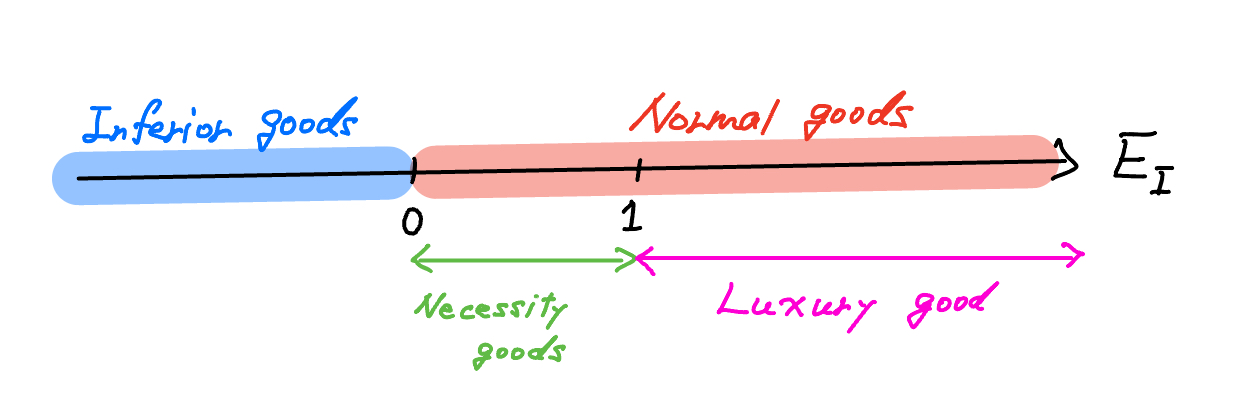 Inferior goods
Normal goods
E_I
0
1
Necessity
goods
Luxury good